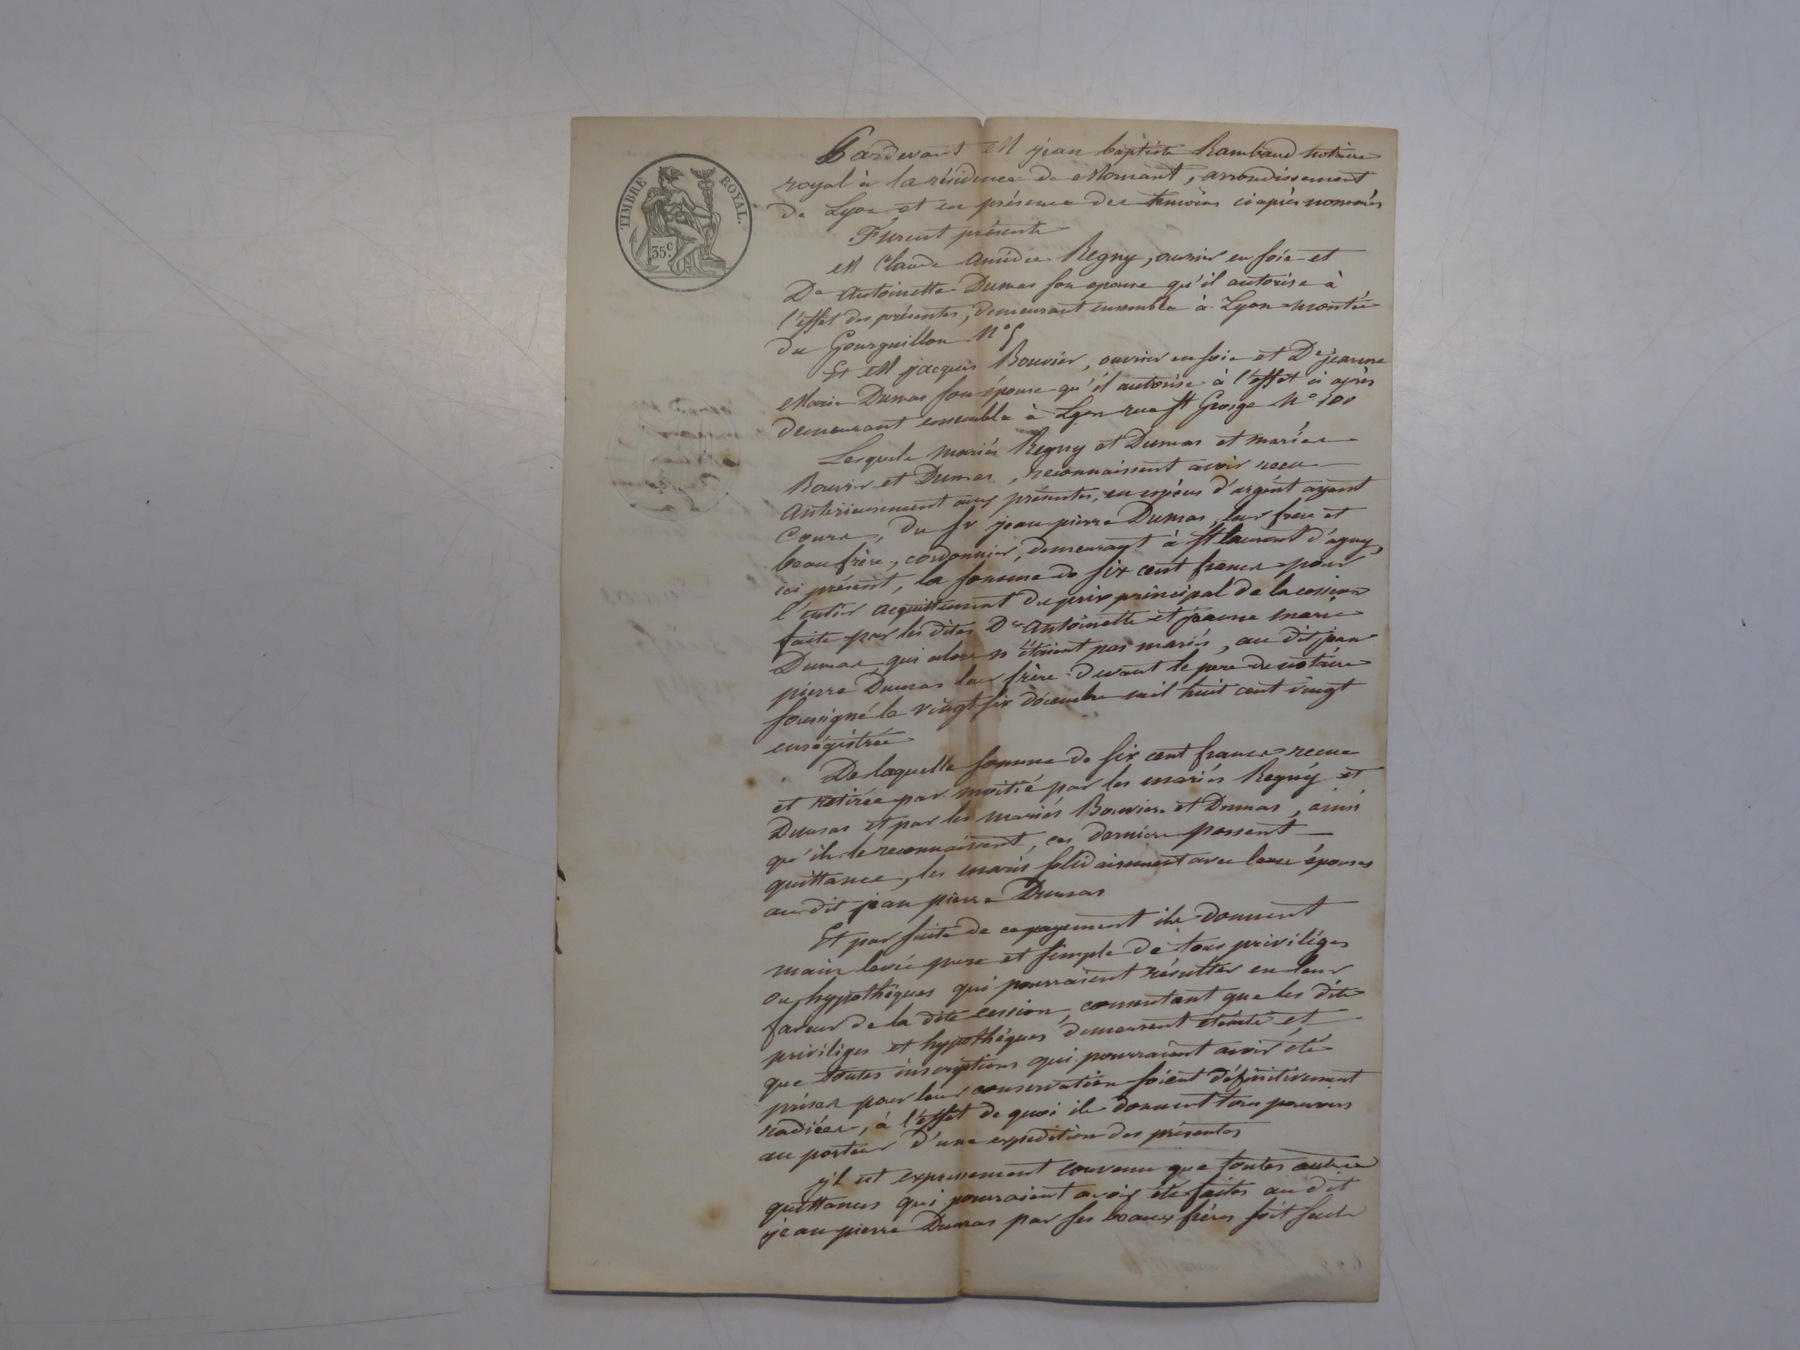 TIMBRE ROYAL.
35c.
Pardevant M jean baptiste Rambaud notaire
royal à la résidence de Mornant, arrondissement
de Lyon et en présence des temoins ci après nommés
Furent présents
M Claude Amédée Regny, ouvrier en soie et
De Antoinette Dumas son epouse qu'il autorise à
l'effet des présentes, demeurant ensemble à Lyon montée
du Gourguillon No 5
Et M jacques Bouvier, ouvrier en soie et De jeanne
Marie Dumas son épouse qu'il autorise à l'effet ci après
demeurant ensemble à Lyon rue St George No 100
Lesquels mariés Regny et Dumas et mariés
Bouvier et Dumas, reconnaissent avoir recu
Antérieurement aux présentes, en espèces d'argent ayant
Cours, du Sr jean pierre Dumas, leur frère et
beau frère, cordonnier, demeurant à St laurent d'agny,
ici présent, la somme de six cent francs pour
l'entier acquittement du prix principal de la cession
faite par les dites Des Antoinette et jeanne marie
Dumas qui alors n'étaient pas mariés, au dit jean
pierre Dumas leur frère devant le pere du notaire
soussigné le vingt six décembre mil huit cent vingt
enrégistrée
De laquelle somme de six cent francs recue
et retirée par moitié par les mariés Regny et
Dumas et par les mariés Bouvier et Dumas, ainsi
qu'ils le reconnaissent, ces derniers passent
quittance, les maris solidairement avec leurs épouses
au dit jean pierre Dumas
Et par suite de ce payement ils donnent
main levée pure et simple de tous priviléges
ou hypothèques qui pourraient résulter en leur
faveur de la dite cession, consentant que les dits
priviléges et hypothéques demeurent éteints et
que toutes inscriptions qui pourraient avoir été
prises pour leur conservation soient définitivement
radiées, à l'effet de quoi ils donnent tous pouvoirs
au porteur d'une expedition des présentes
il est expressement convenu que toutes autres
quittances qui pourraient avoir été faites au dit
jean pierre Dumas par ses beaux frères soit